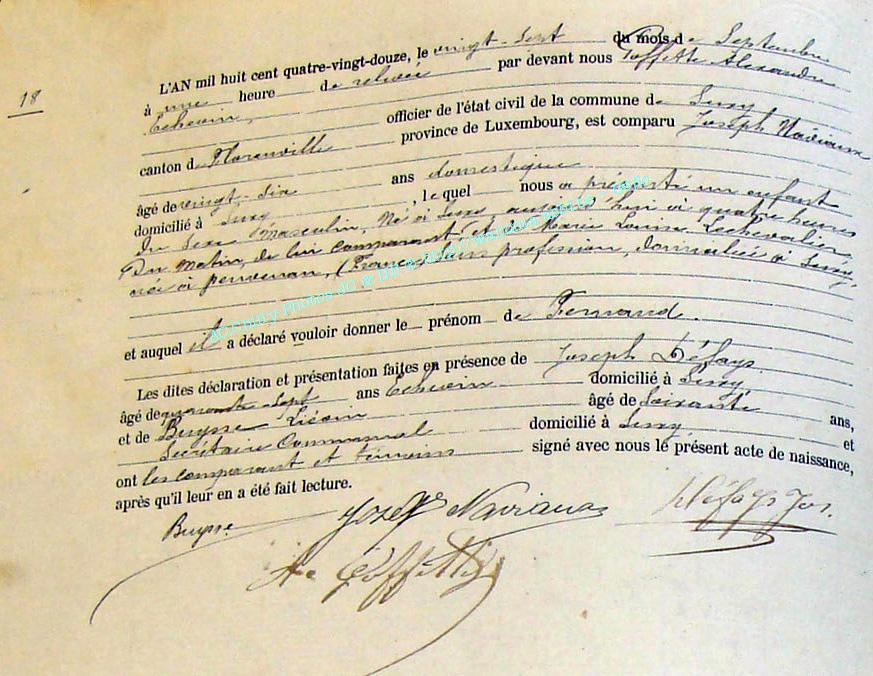 18
L'AN mil huit cent quatre-vingt-douze, le vingt-sept du mois de Septembre
à une heure de relevée par devant nous Poffette Alexandre
Echevin, officier de l'état civil de la commune de Suxy
canton de Floranville province de Luxembourg, est comparu Joseph Naviaux
âgé de vingt-six ans domestique
domicilié à Suxy, lequel nous a présenté un enfant
du sexe masculin, Né à Suxy, aujourd'hui à quatre heures
Du matin, de lui comparant et de Marie Louise Lechevalier
née à penvenan, (France) sans profession, domiciliée à Suxy,
et auquel il a déclaré vouloir donner le prénom de Fernand.
Les dites déclaration et présentation faites en présence de Joseph Défays
âgé de quarante-sept ans Echevin domicilié à Suxy,
et de Buysse âgé de Soixante ans,
Secrétaire Communal domicilié à Suxy et
ont les comparant et témoins signé avec nous le présent acte de naissance,
après qu'il leur en a été fait lecture.
Buysse Naviaux Défays Jos.
Poffette